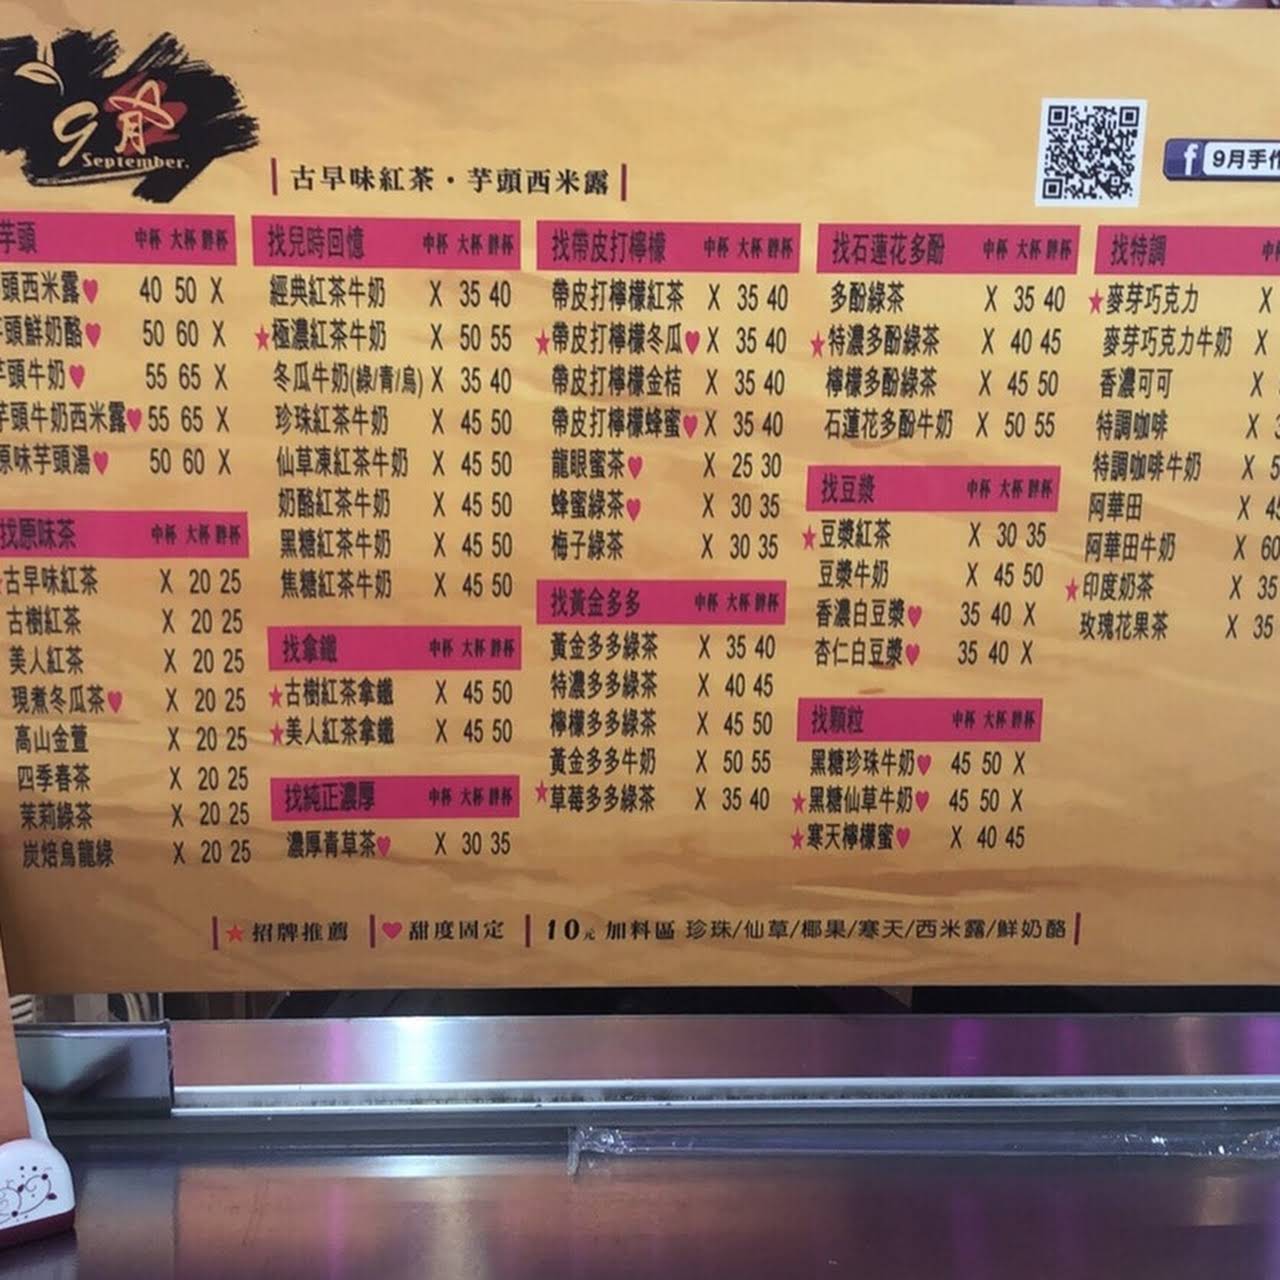 9月
September.
古早味紅茶・芋頭西米露
9月手作
芋頭 中杯 大杯 胖杯
頭西米露♥ 40 50 X
芋頭鮮奶酪♥ 50 60 X
芋頭牛奶♥ 55 65 X
芋頭牛奶西米露♥ 55 65 X
原味芋頭湯♥ 50 60 X
找原味茶 中杯 大杯 胖杯
★古早味紅茶 X 20 25
古樹紅茶 X 20 25
美人紅茶 X 20 25
現煮冬瓜茶♥ X 20 25
高山金萱 X 20 25
四季春茶 X 20 25
茉莉綠茶 X 20 25
炭焙烏龍綠 X 20 25
找兒時回憶 中杯 大杯 胖杯
經典紅茶牛奶 X 35 40
★極濃紅茶牛奶 X 50 55
冬瓜牛奶(綠/青/烏) X 35 40
珍珠紅茶牛奶 X 45 50
仙草凍紅茶牛奶 X 45 50
奶酪紅茶牛奶 X 45 50
黑糖紅茶牛奶 X 45 50
焦糖紅茶牛奶 X 45 50
找拿鐵 中杯 大杯 胖杯
★古樹紅茶拿鐵 X 45 50
★美人紅茶拿鐵 X 45 50
找純正濃厚 中杯 大杯 胖杯
濃厚青草茶♥ X 30 35
找帶皮打檸檬 中杯 大杯 胖杯
帶皮打檸檬紅茶 X 35 40
★帶皮打檸檬冬瓜♥ X 35 40
帶皮打檸檬金桔 X 35 40
帶皮打檸檬蜂蜜♥ X 35 40
龍眼蜜茶♥ X 25 30
蜂蜜綠茶♥ X 30 35
梅子綠茶 X 30 35
找黃金多多 中杯 大杯 胖杯
黃金多多綠茶 X 35 40
特濃多多綠茶 X 40 45
檸檬多多綠茶 X 45 50
黃金多多牛奶 X 50 55
★草莓多多綠茶 X 35 40
找石蓮花多酚 中杯 大杯 胖杯
多酚綠茶 X 35 40
★特濃多酚綠茶 X 40 45
檸檬多酚綠茶 X 45 50
石蓮花多酚牛奶 X 50 55
找豆漿 中杯 大杯 胖杯
★豆漿紅茶 X 30 35
豆漿牛奶 X 45 50
香濃白豆漿♥ 35 40 X
杏仁白豆漿♥ 35 40 X
找顆粒 中杯 大杯 胖杯
黑糖珍珠牛奶♥ 45 50 X
★黑糖仙草牛奶♥ 45 50 X
★寒天檸檬蜜♥ X 40 45
找特調 中
★麥芽巧克力 X
麥芽巧克力牛奶 X
香濃可可 X
特調咖啡 X
特調咖啡牛奶 X 5
阿華田 X 45
阿華田牛奶 X 60
★印度奶茶 X 35
玫瑰花果茶 X 35
★招牌推薦 ♥甜度固定 10元 加料區 珍珠/仙草/椰果/寒天/西米露/鮮奶酪